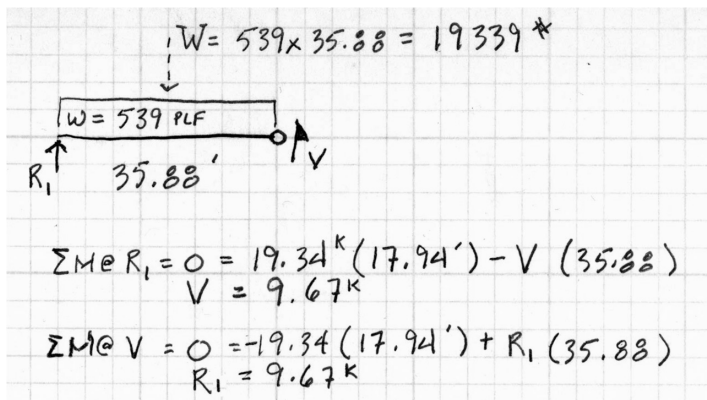 W = 539 x 35.88 = 19339 #
w = 539 PLF
R₁ 35.88' V
ΣM@ R₁ = 0 = 19.34ᴷ (17.94') - V (35.88)
V = 9.67ᴷ
ΣM@ V = 0 = -19.34 (17.94') + R₁ (35.88)
R₁ = 9.67ᴷ